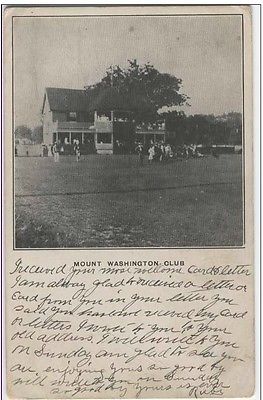 MOUNT WASHINGTON CLUB
I received your most welcome Card & letter
I am alway glad to received a letter or
Card from you in your letter you
said you have not received my Card
or letters I wrote to you to your
old address, I will write to you
on Sunday am glad to see you
are enjoying yours so good by
will write to you on Sunday
so good by yours